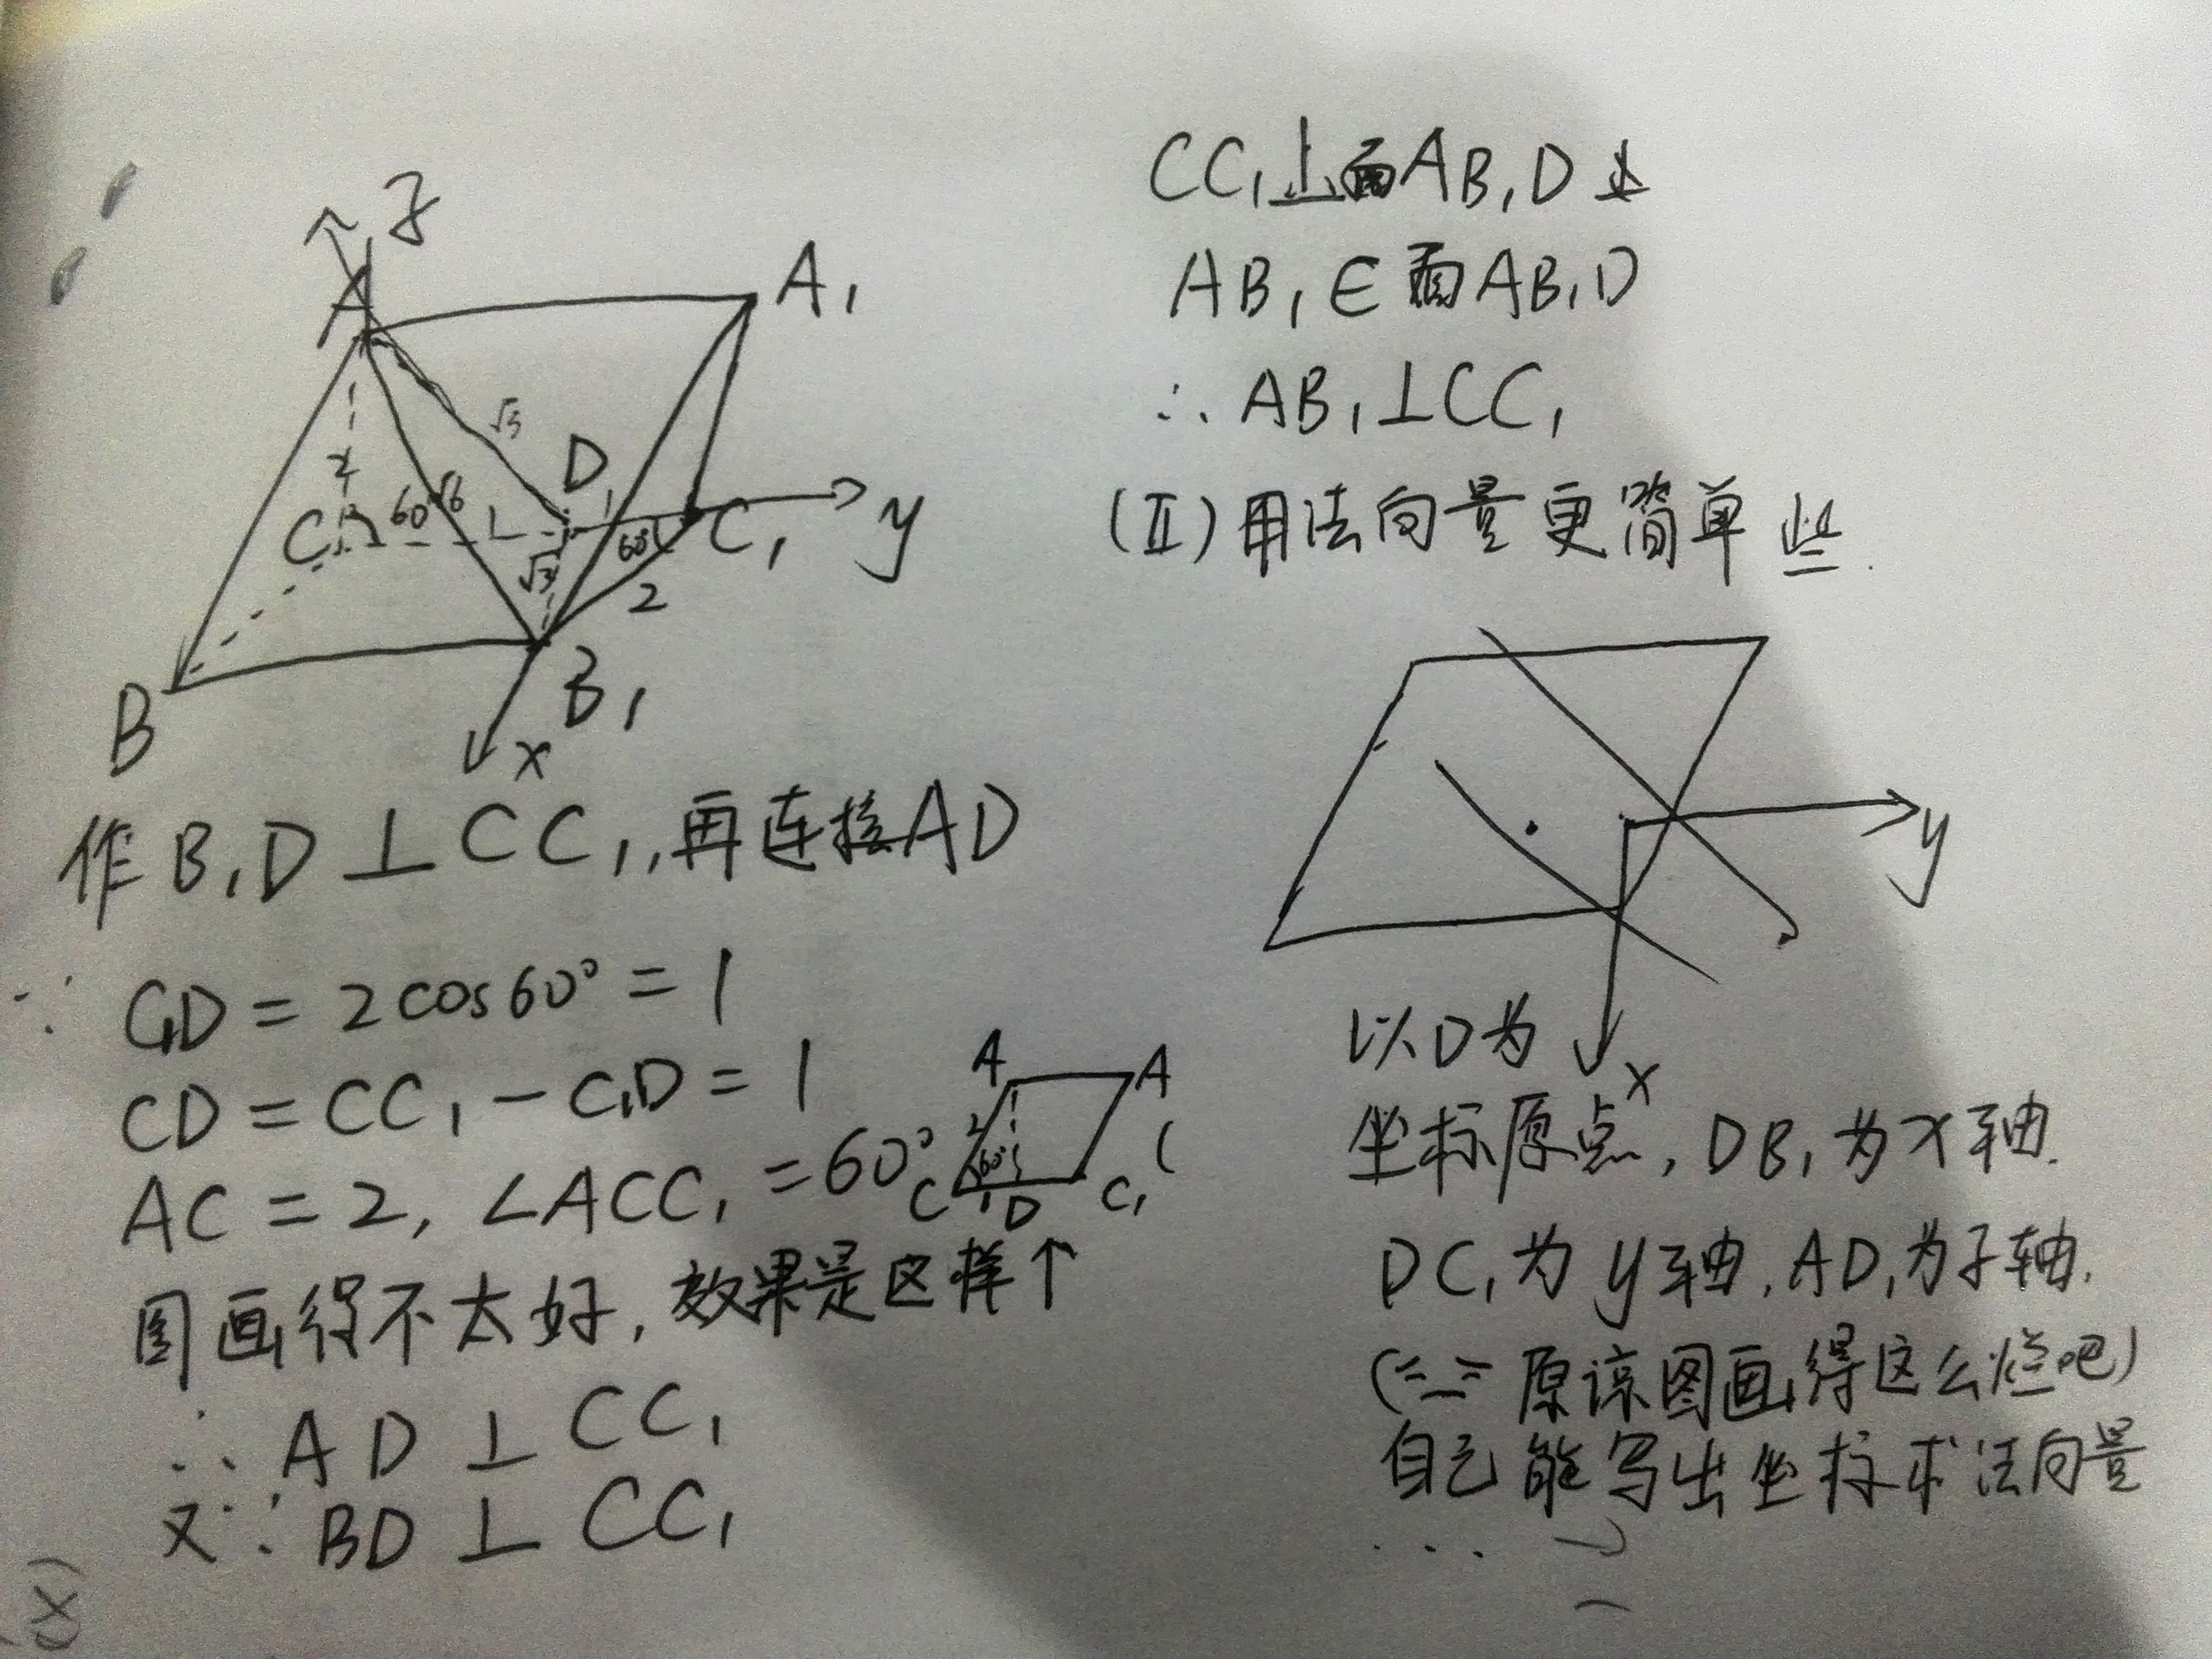 z
A
A₁
√3
D
2
C
60°
√6
1
1
60°
C₁
y
√3
2
B
B₁
x
作B₁D⊥CC₁,再连接AD
∵ C₁D=2cos60°=1
CD=CC₁-C₁D=1
AC=2,∠ACC₁=60°
A
A₁
2
60°
C
1
D
C₁
图画得不太好,效果是这样↑
∴AD⊥CC₁
又∵BD⊥CC₁
CC₁⊥面AB₁D
AB₁∈面AB₁D
∴AB₁⊥CC₁
(Ⅱ)用法向量更简单些.
y
x
以D为
坐标原点,DB₁为x轴.
DC₁为y轴.AD,为z轴.
(=_= 原谅图画得这么烂吧)
自己能写出坐标求法向量
...